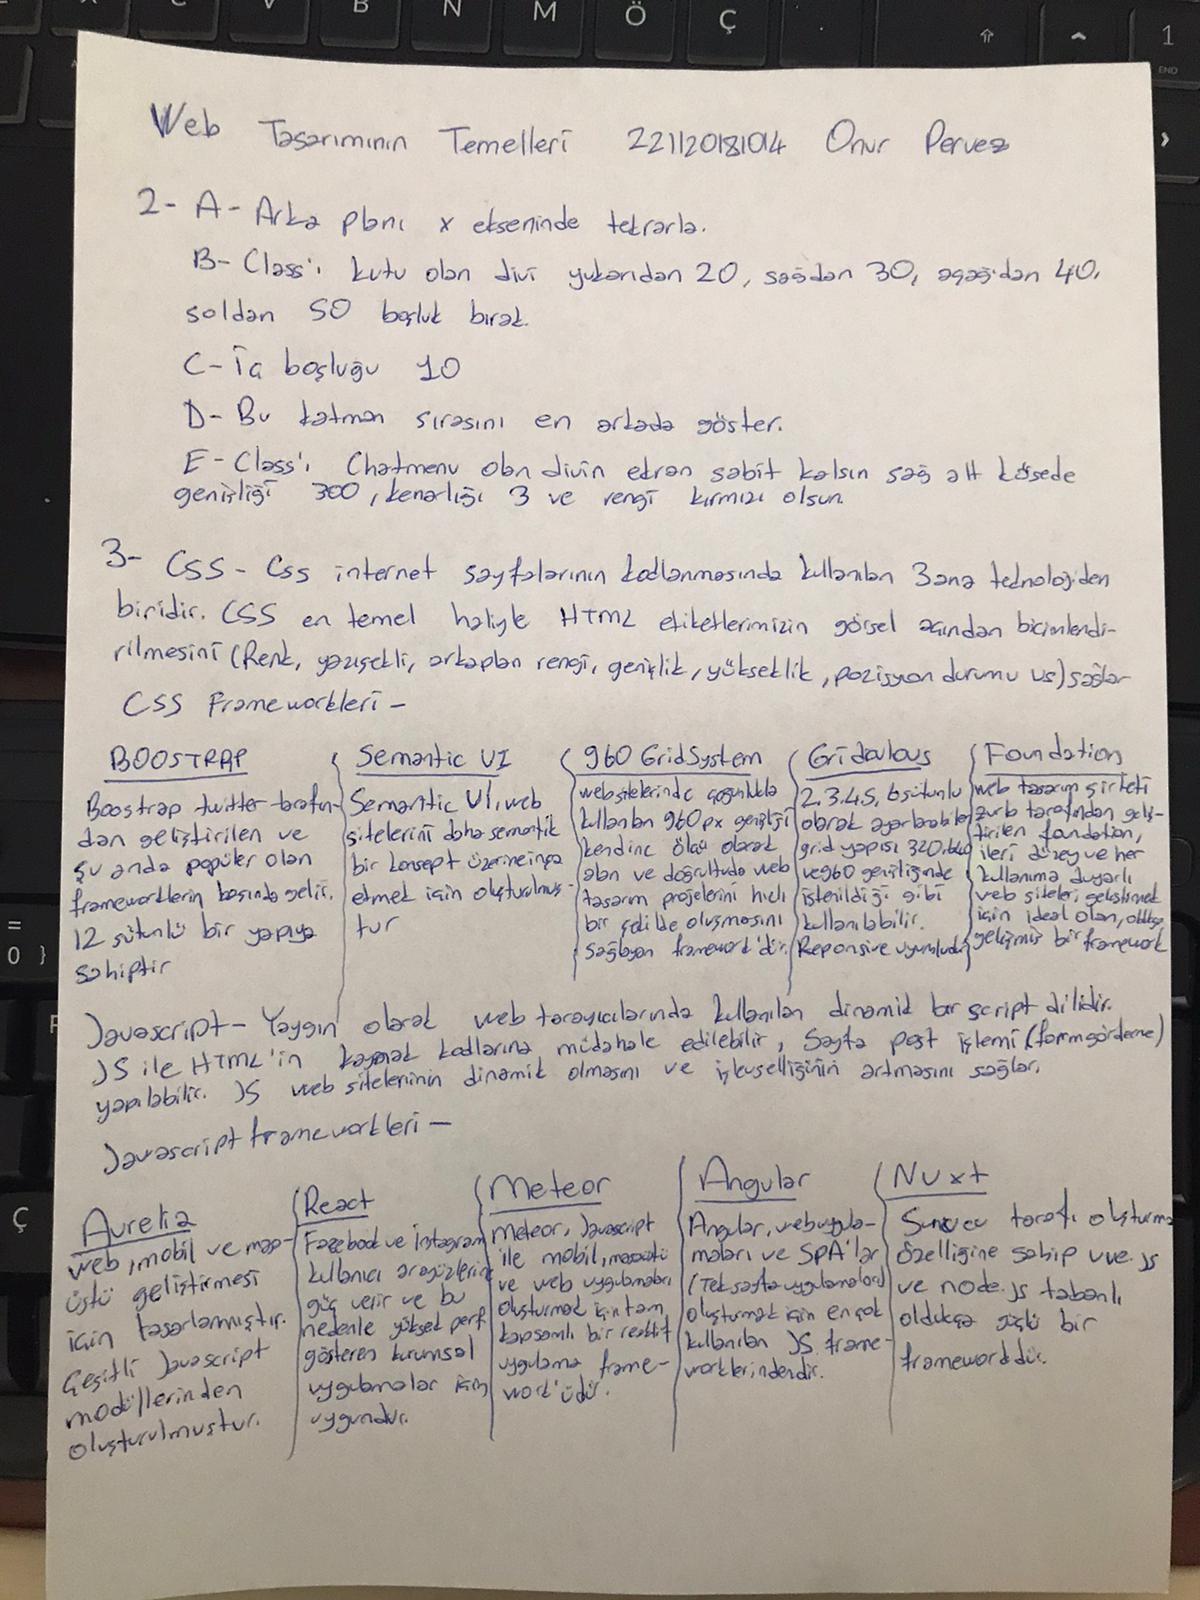 Web Tasarımının Temelleri 221120181014 Onur Pervez
2- A- Arka planı x ekseninde tekrarla.
B- Class'ı kutu olan divi yukarıdan 20, sağdan 30, aşağıdan 40,
soldan 50 boşluk bırak.
C- İç boşluğu 10
D- Bu katman sırasını en arkada göster.
E- Class'ı Chatmenu olan divin ekran sabit kalsın sağ alt köşede
genişliği 300, kenarlığı 3 ve rengi kırmızı olsun
3- CSS - Css internet sayfalarının kodlanmasında kullanılan 3 ana teknolojiden
biridir. CSS en temel haliyle HTML etiketlerimizin görsel açıdan biçimlendi-
rilmesini (Renk, yazışekli, arkaplan rengi, genişlik, yükseklik, pozisyon durumu vs) sağlar
CSS Frameworkleri -
BOOSTRAP
Boostrap twitter tarafın-
dan geliştirilen ve
şu anda popüler olan
frameworklerin başında gelir.
12 sütunlu bir yapıya
sahiptir
Semantic UI
Semantic UI, web
sitelerini daha semantik
bir konsept üzerine inşa
etmek için oluşturulmuş-
tur
960 GridSystem
websitelerinde çoğunlukla
kullanılan 960px genişliği
kendine ölçü olarak
alan ve doğrultuda web
tasarım projelerini hızlı
bir şekilde oluşmasını
sağlayan framework'dür.
Gridoulous
2.3.4.5, 6 sütunlu
olarak ayarlanabilen
grid yapısı 320,640
ve 960 genişliğinde
istenildiği gibi
kullanılabilir.
Reponsive uyumludur
Foundation
web tasarım şirketi
zurb tarafından geliş-
tirilen foundation,
ileri düzey ve her
kullanıma duyarlı
web siteleri geliştirmek
için ideal olan, oldukça
gelişmiş bir framework
Javascript - Yaygın olarak web tarayıcılarında kullanılan dinamik bir script dilidir.
JS ile HTML'in kaynak kodlarına müdahale edilebilir, Sayfa post işlemi (form gönderme)
yapılabilir. JS web sitelerinin dinamik olmasını ve işlevselliğinin artmasını sağlar.
Javascript frameworkleri -
Aurelia
web, mobil ve mas-
üstü geliştirmesi
için tasarlanmıştır.
Çeşitli Javascript
modüllerinden
oluşturulmustur.
React
Facebook ve İnstagram
kullanıcı arayüzlerine
güç verir ve bu
nedenle yüksek perf
gösteren kurumsal
uygulamalar için
uygundur.
Meteor
Meteor, Javascript
ile mobil, masaüstü
ve web uygulamaları
oluşturmak için tam
kapsamlı bir reaktif
uygulama frame-
work'üdür.
Angular
Angular, web uygula-
maları ve SPA'lar
(Tek sayfa uygulamaları)
oluşturmak için en çok
kullanılan JS frame-
worklerindendir.
Nuxt
Sunucu tarafı oluşturma
özelliğine sahip vue.js
ve node.js tabanlı
oldukça güçlü bir
frameworkdür.